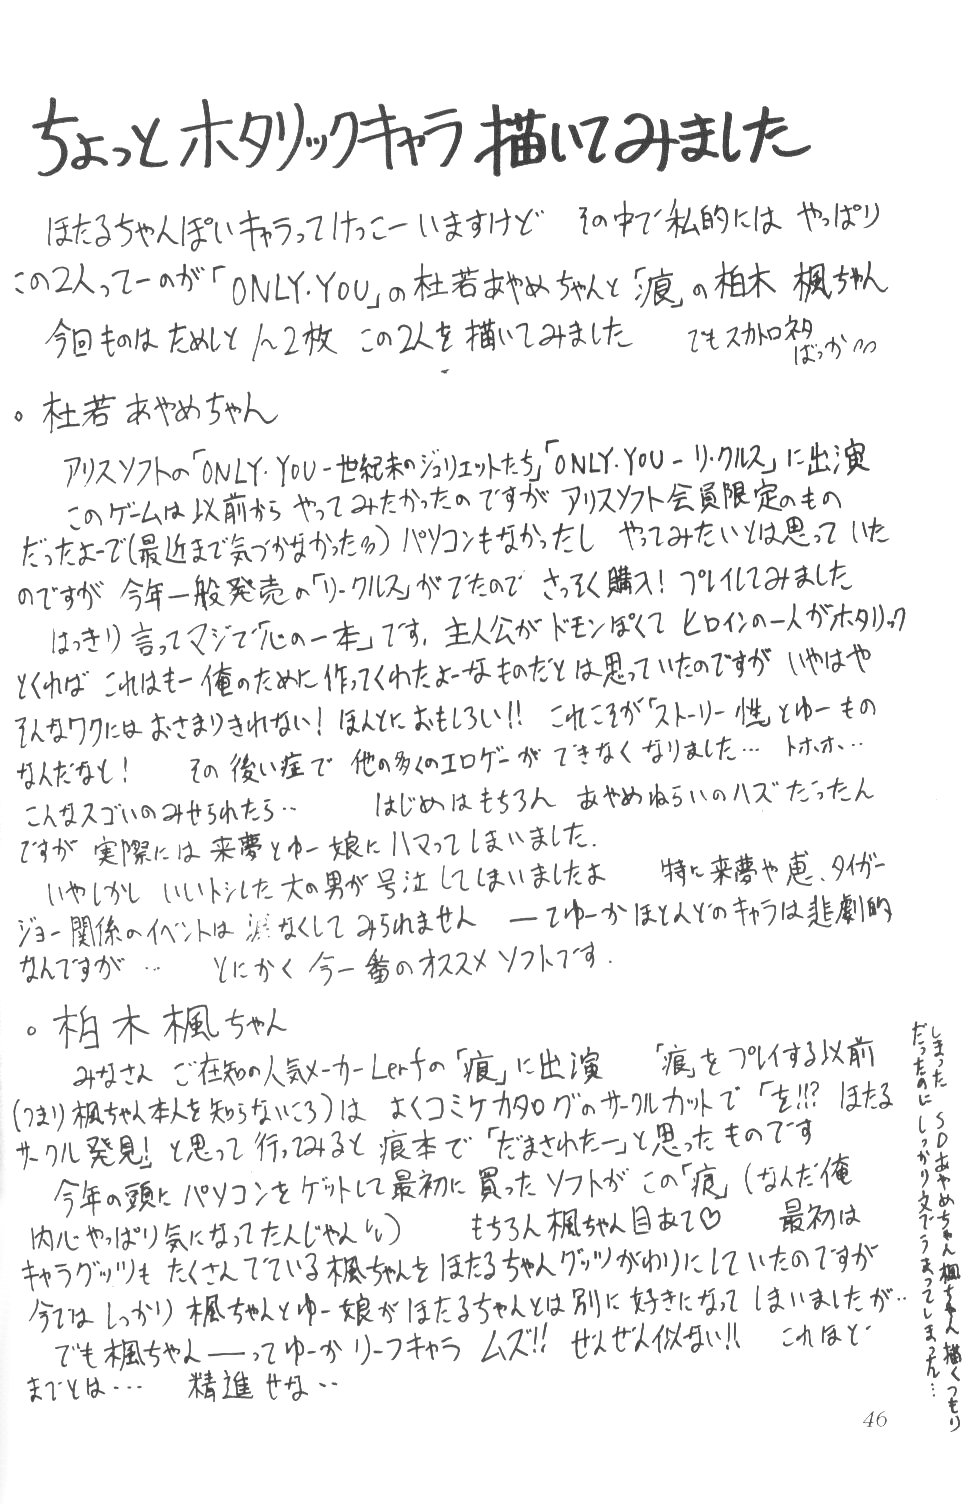 ちょっとホタリックキャラ描いてみました
ほたるちゃんぽいキャラってけっこーいますけど その中で私的には やっぱり
この2人ってーのが「ONLY・YOU」の杜若あやめちゃんと「痕」の柏木 楓ちゃん
今回ものはためしと 1〜2枚 この2人を描いてみました でもスカトロネタ
ばっか
。杜若あやめちゃん
アリスソフトの「ONLY・YOU-世紀末のジュリエットたち」「ONLY・YOU-リ・クルス」に出演
このゲームは以前からやってみたかったのですがアリスソフト会員限定のもの
だったよーで(最近まで気づかなかった)パソコンもなかったし やってみたいとは思っていた
のですが 今年一般発売の「リ・クルス」がでたので さっそく購入!プレイしてみました
はっきり言ってマジで「心の一本」です. 主人公がドモンぽくて ヒロインの一人がホタリック
とくれば これはもー俺のために作ってくれたよーなものだとは思っていたのですが いやはや
そんなワクにはおさまりきれない!ほんとにおもしろい!! これこそが「ストーリー性」とゆーもの
なんだなと! その後い症で 他の多くのエロゲーができなくなりました… トホホ…
こんなスゴいのみせられたら‥ はじめはもちろん あやめねらいのハズだったん
ですが 実際には来夢とゆー娘にハマってしまいました.
いやしかし いいトシした大の男が号泣してしまいましたよ 特に来夢や恵、タイガー
ジョー関係のイベントは 涙なくしてみられません ーてゆーかほとんどのキャラは悲劇的
なんですが … とにかく今一番のオススメソフトです.
。柏木楓ちゃん
みなさん ご在知の人気メーカーLerfの「痕」に出演 「痕」をプレイする以前
(つまり楓ちゃん本人を知らないころ)は よくコミケカタログのサークルカットで「を!!? ほたる
サークル発見!」と思って行ってみると 痕本で「だまされたー」と思ったものです
今年の頭にパソコンをゲットして最初に買ったソフトがこの「痕」(なんだ俺
内心やっぱり気になってたんじゃん) もちろん楓ちゃん目あて♡ 最初は
キャラグッツもたくさんでている楓ちゃんをほたるちゃんグッツがわりにしていたのですが
今ではしっかり楓ちゃんとゆー娘がほたるちゃんとは別に好きになってしまいましたが‥
でも楓ちゃんーってゆーかリーフキャラ ムズ!! ぜんぜん似ない!! これほど
までとは… 精進せな‥
しまった SDあやめちゃん楓ちゃん描くつもり
だったのにしっかり文でうまってしまった…
46